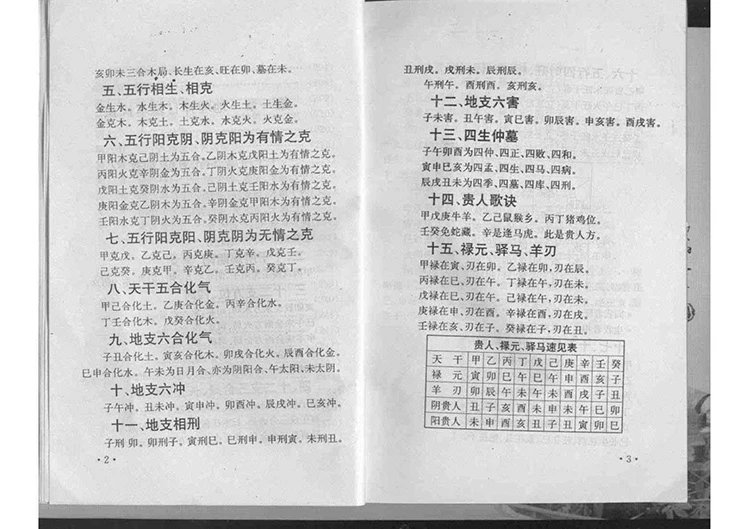 亥卯未三合木局、长生在亥、旺在卯、墓在未。
五、五行相生、相克
金生水。水生木。木生火。火生土。土生金。
金克木。木克土。土克水。水克火。火克金。
六、五行阳克阴、阴克阳为有情之克
甲阳木克己阴土为五合、乙阴木克戊阳土为有情之克。
丙阳火克辛阴金为五合、丁阴火克庚阳金为有情之克。
戊阳土克癸阴水为五合、己阴土克壬阳水为有情之克。
庚阳金克乙阴木为五合、辛阴金克甲阳木为有情之克。
壬阳水克丁阴火为五合、癸阴水克丙阳火为有情之克。
七、五行阳克阳、阴克阴为无情之克
甲克戊。乙克己。丙克庚。丁克辛。戊克壬。
己克癸。庚克甲。辛克乙。壬克丙。癸克丁。
八、天干五合化气
甲己合化土。乙庚合化金。丙辛合化水。
丁壬合化木。戊癸合化火。
九、地支六合化气
子丑合化土。寅亥合化木。卯戌合化火。辰酉合化金。
巳申合化水。午未为日月合、亦为阴阳合、午太阳、未太阴。
十、地支六冲
子午冲。丑未冲。寅申冲。卯酉冲。辰戌冲。巳亥冲。
十一、地支相刑
子刑卯。卯刑子。寅刑巳。巳刑申。申刑寅。未刑丑。
·2·
丑刑戌。戌刑未。辰刑辰。
午刑午。酉刑酉。亥刑亥。
十二、地支六害
子未害。丑午害。寅巳害。卯辰害。申亥害。酉戌害。
十三、四生仲墓
子午卯酉为四仲、四正、四败、四和。
寅申巳亥为四孟、四生、四马、四病。
辰戌丑未为四季、四墓、四库、四刑。
十四、贵人歌诀
甲戊庚牛羊。乙己鼠猴乡。丙丁猪鸡位。
壬癸兔蛇藏。辛是逢马虎。此是贵人方。
十五、禄元、驿马、羊刃
甲禄在寅、刃在卯。乙禄在卯、刃在辰。
丙禄在巳、刃在午。丁禄在午、刃在未。
戊禄在巳、刃在午。己禄在午、刃在未。
庚禄在申、刃在酉。辛禄在酉、刃在戌。
壬禄在亥、刃在子。癸禄在子、刃在丑。
贵人、禄元、驿马速见表
天干 甲 乙 丙 丁 戊 己 庚 辛 壬 癸
禄元 寅 卯 巳 午 巳 午 申 酉 亥 子
羊刃 卯 辰 午 未 午 未 酉 戌 子 丑
阴贵人 丑 子 亥 酉 未 申 未 午 巳 卯
阳贵人 未 申 酉 亥 丑 子 丑 寅 卯 巳
·3·